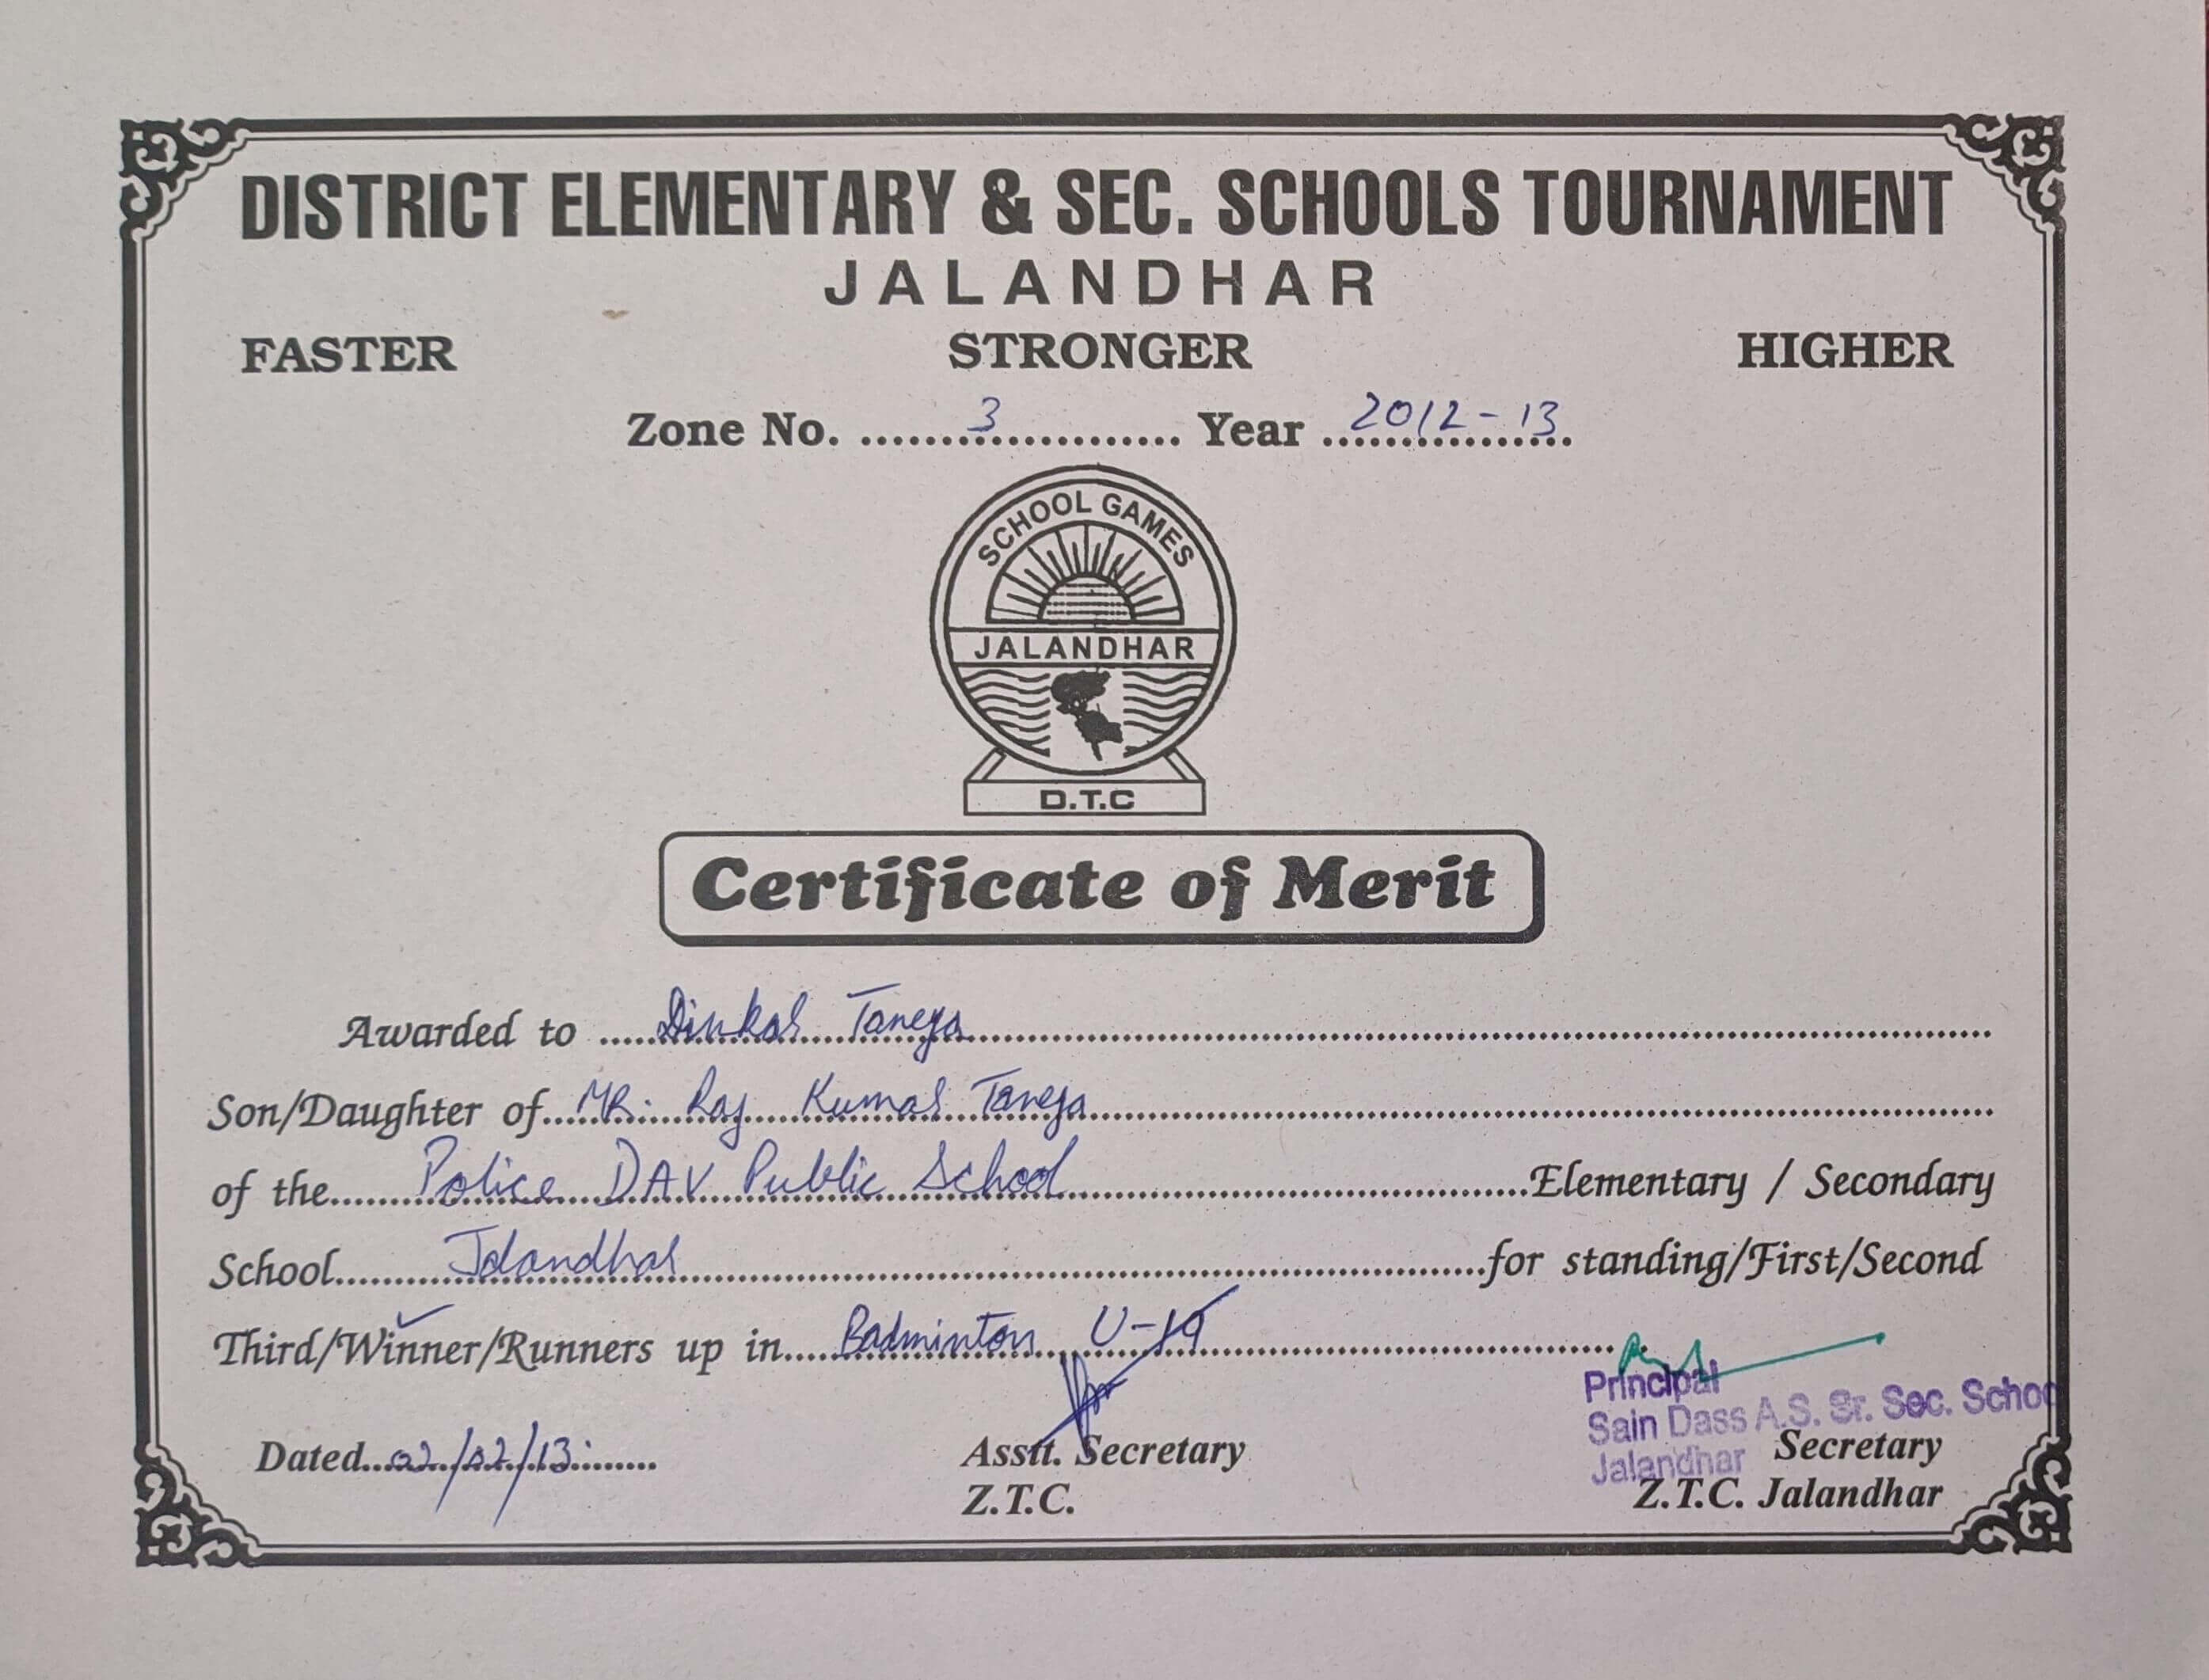 DISTRICT ELEMENTARY & SEC. SCHOOLS TOURNAMENT
JALANDHAR
FASTER STRONGER HIGHER
Zone No. ..................... Year ................
3 2012-13
SCHOOL GAMES
JALANDHAR
D.T.C
Certificate of Merit
Awarded to .....Dinkar Taneja.....
Son/Daughter of...MR. Raj Kumar Taneja.....
of the.....Police DAV Public School.....Elementary / Secondary
School.....Jalandhar.....for standing/First/Second
Third/Winner/Runners up in.....Badminton U-19.....
Principal
Sain Dass A.S. Sr. Sec. Schoo
Jalandhar
Dated...02/02/13.....
Asstt. Secretary
Z.T.C.
Secretary
Z.T.C. Jalandhar